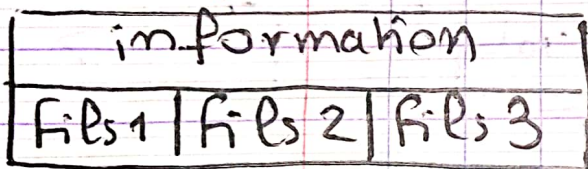 information
fils 1 fils 2 fils 3